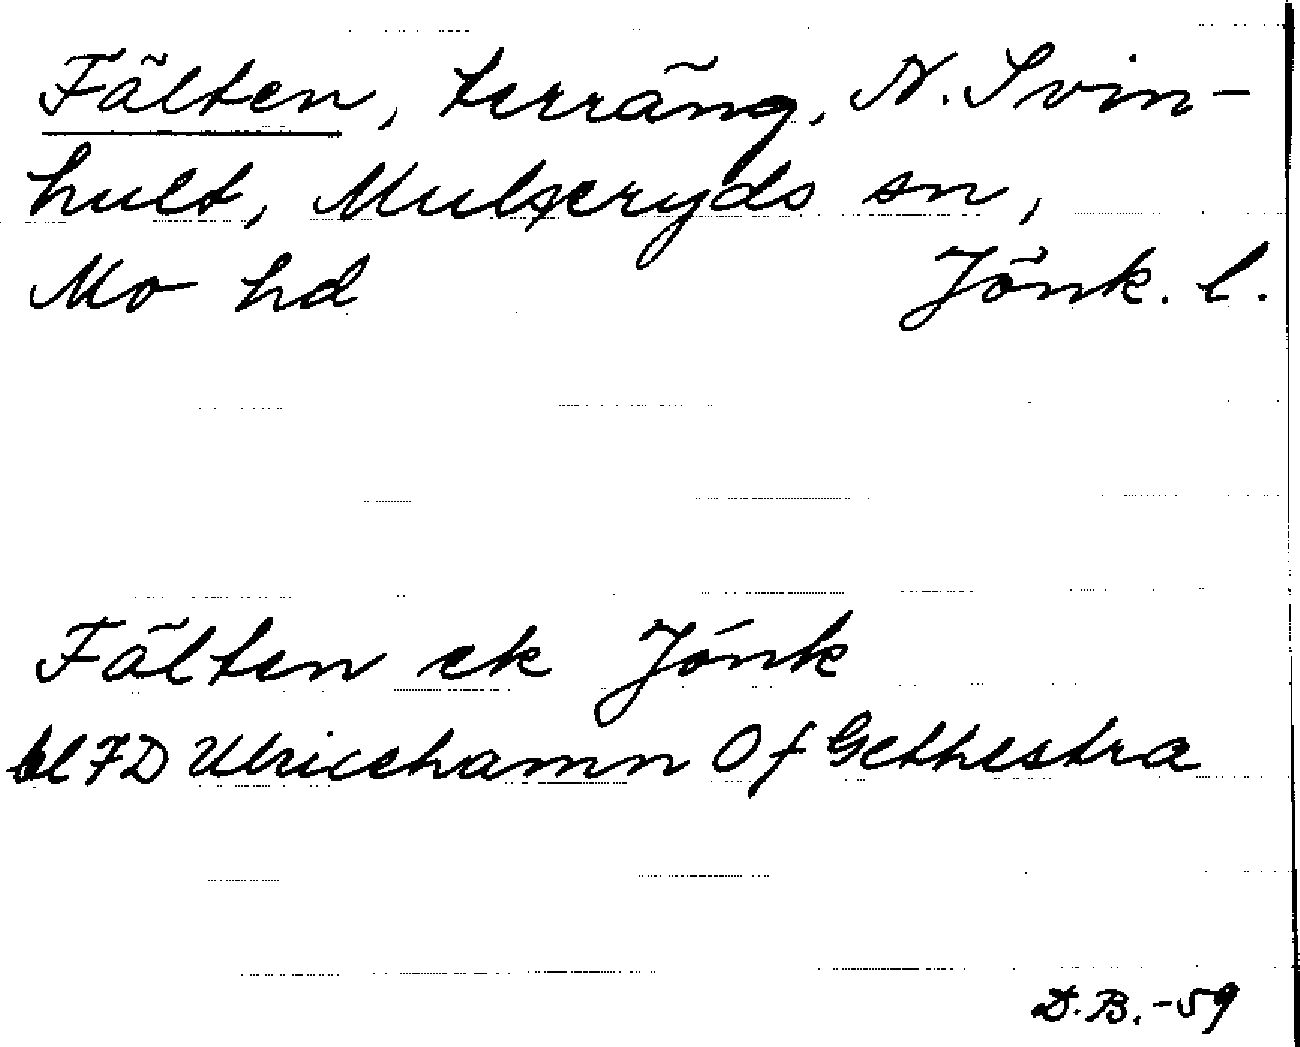 Fälten, terräng, N. Svin-
hult, Mulseryds sn,
Mo hd Jönk. l.
Fälten ek Jönk
bl 7D Ulricehamn Of Gethestra
D.B. -59